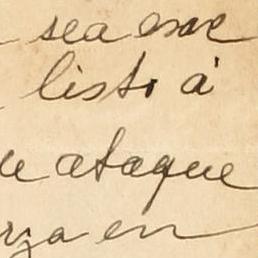 sea ese
listo á
ataque
en